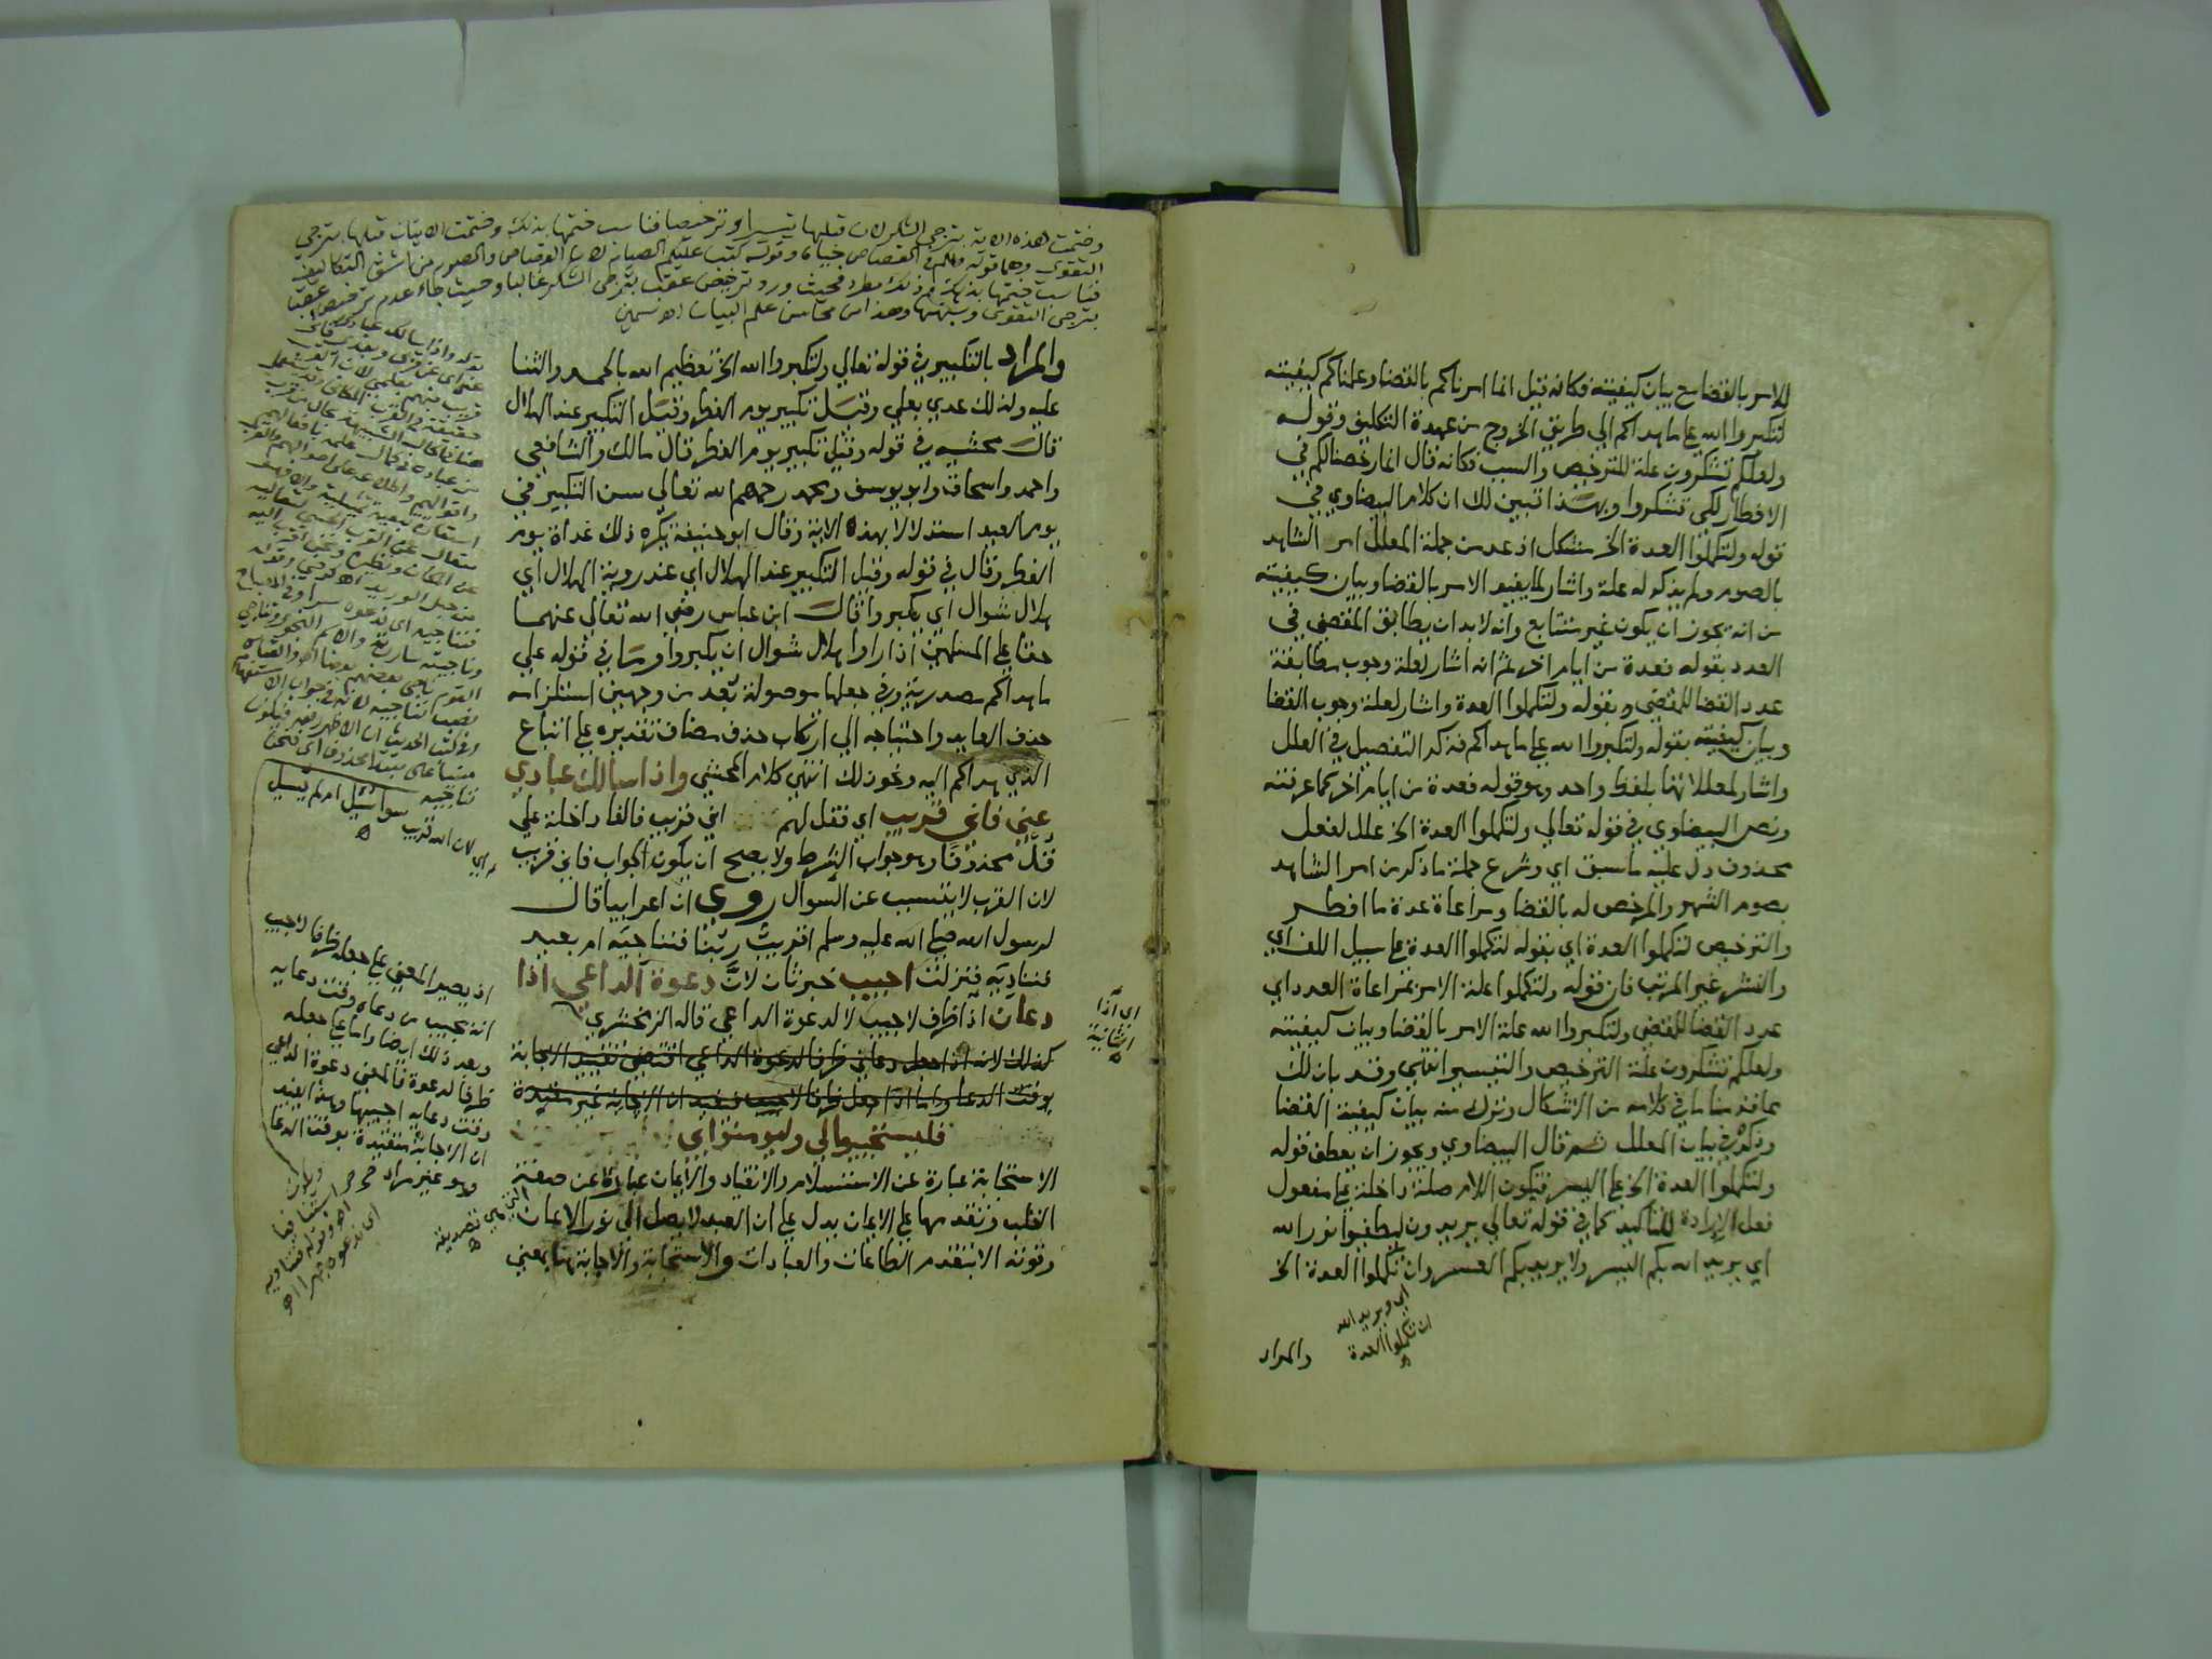 للامر بالقضا مع بيان كيفيته فكانه قيل انما امرناكم بالقضا وعلمناكم كيفيته
لتكبروا الله على ما هداكم الي طريق الخروج من عهدة التكليف وقوله
ولعلكم تشكرون علة للترخيص والسبب فكانه قال انما رخصنا لكم في
الافطار لكي تشكروا وبهذا تبين لك ان كلام البيضاوي في
قوله ولتكملوا العدة الخ مشكل اذ عد من جملة المعلل امر الشاهد
بالصوم ولم يذكر له علة واشار لما يفيد الامر بالقضا وبيان كيفيته
من انه يجوز ان يكون غير متتابع وانه لابد ان يطابق المقضي في
العدد بقوله فعدة من ايام اخر ثم انه اشار لعلة وجوب مطابقة
عدد القضا للمقضي بقوله ولتكملوا العدة واشار لعلة وجوب القضا
وبيان كيفيته بقوله ولتكبروا الله على ما هداكم فذكر التفصيل في العلل
واشار لمعللاتها بلفظ واحد وهو قوله فعدة من ايام اخر كما عرفته
ونص البيضاوي في قوله تعالي ولتكملوا العدة الخ علل لفعل
محذوف دل عليه ما سبق اي وشرع جملة ما ذكر من امر الشاهد
بصوم الشهر والمرخص له بالقضا ومراعاة عدة ما افطر
والترخيص لتكملوا العدة اي بقوله لتكملوا العدة على سبيل اللف اي
والنشر غير المرتب فان قوله ولتكملوا علة الامر بمراعاة العدد اي
عدد القضا للمقضي ولتكبروا الله علة الامر بالقضا وبيان كيفيته
ولعلكم تشكرون علة الترخيص والتيسير انتهي وقد بان لك
بما قدمنا ما في كلامه من الاشكال وترك منه بيان كيفية القضا
وذكره في بيان المعلل ثم قال البيضاوي ويجوز ان يعطف قوله
ولتكملوا العدة الخ على اليسر فتكون اللام صلة داخلة على مفعول
فعل الارادة للتاكيد كما في قوله تعالي يريدون ليطفيوا نور الله
اي يريد الله بكم اليسر ولا يريد بكم العسر وان تكملوا العدة الخ
اي ويريد الله
ان تكملوا العدة
والمراد
وختمت هذه الاية بترجي الشكر لان قبلها تيسيرا وترخيصا فناسب ختمها بذلك وختمت الايتان قبلها بترجي
التقوى وهما قوله ولكم في القصاص حياة وقوله كتب عليكم الصيام لان القصاص والصوم من اشق التكاليف
فناسب ختمها بذلك وذلك مطرد فحيث ورد ترخيص عقب بترجي الشكر غالبا وحيث جاء عدم ترخيص عقب
بترجي التقوى وشبهها وهذا من محاسن علم البيان اهـ سمين
والمراد بالتكبير في قوله تعالي ولتكبروا الله الخ تعظيم الله بالحمد والثنا
عليه ولذلك عدي بعلي وقيل تكبير يوم الفطر وقيل التكبير عند الهلال
قال محشيه في قوله وقيل تكبير يوم الفطر قال مالك والشافعي
واحمد واسحاق وابو يوسف ومحمد رحمهم الله تعالي سن التكبير في
يوم العيد استدلالا بهذه الاية وقال ابو حنيفة يكره ذلك غداة يوم
الفطر وقال في قوله وقيل التكبير عند الهلال اي عند روية الهلال اي
هلال شوال اي يكبروا قال ابن عباس رضي الله تعالي عنهما
حقا على المسلمين اذا راوا هلال شوال ان يكبروا وما في قوله علي
ما هداكم مصدرية وفي جعلها موصولة بعد من وجهين استلزامه
حذف العايد واحتياجه الي ارتكاب حذف مضاف تقديره على اتباع
الذي هداكم اليه ونحو ذلك انتهي كلام المحشي واذا سالك عبادي
عني فاني قريب اي فقل لهم اني قريب فالفا داخلة علي
قل محذوفا وهو جواب الشرط ولا يصح ان يكون الجواب فاني قريب
لان القرب لا يتسبب عن السوال روي ان اعرابيا قال
لرسول الله صلى الله عليه وسلم اقريب ربنا فنناجيه ام بعيد
فنناديه فنزلت اجيب خبر ثان لان دعوة الداعي اذا
دعان اذا ظرف لاجيب لا لدعوة الداعي قاله الزمخشري
كذلك لانه اذا جعل دعاني ظرفا لدعوة الداعي اقتضى تقييد الاجابة
بوقت الدعا واما اذا جعل ظرفا لاجيب فيفيد ان الاجابة غير مقيدة
فليستجيبوا لي وليومنوا بي
الاستجابة عبارة عن الاستسلام والانقياد والايمان عبارة عن صفة
القلب وتقديمها على الايمان يدل على ان العبد لا يصل الي نور الايمان
وقوته الا بتقدم الطاعات والعبادات والاستجابة والاجابة هنا بمعني
اي اذا
الثانية
سواء سئل ام لم يسئل
اي لان الله قريب
اذ يصير المعني على جعله ظرفا لاجيب
انه يجيب من دعاه وقت دعايه
وبعد ذلك ايضا واما على جعله
ظرفا لدعوة فالمعني دعوة الداعي
وقت دعايه اجيبها وهذا يفيد
ان الاجابة متقيدة بوقت الدعا
وهو غير مراد
التي هي تصديقه